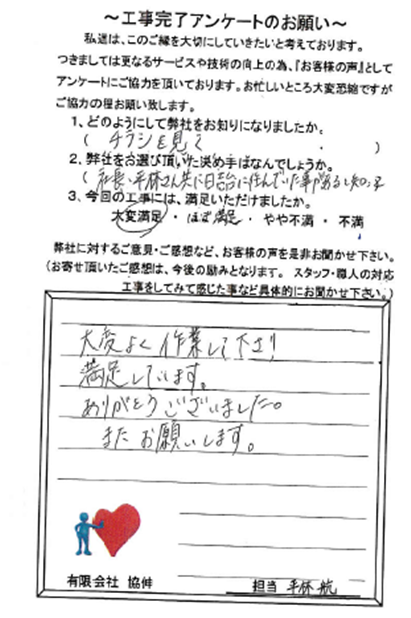 ～工事完了アンケートのお願い～
私達は、このご縁を大切にしていきたいと考えております。
つきましては更なるサービスや技術の向上の為、『お客様の声』として
アンケートにご協力を頂いております。お忙しいところ大変恐縮ですが
ご協力の程お願い致します。
1、どのようにして弊社をお知りになりましたか。
( チラシを見て )
2、弊社をお選び頂いた決め手はなんでしょうか。
(社長、平林さん共に日吉に住んでいた事があると知って
3、今回の工事には、満足いただけましたか。
大変満足 ・ ほぼ満足 ・ やや不満 ・ 不満
弊社に対するご意見・ご感想など、お客様の声を是非お聞かせ下さい。
(お寄せ頂いたご感想は、今後の励みとなります。 スタッフ・職人の対応
工事をしてみて感じた事など具体的にお聞かせ下さい。)
大変よく作業して下さり
満足しています。
ありがとうございました。
またお願いします。
有限会社 協伸
担当 平林 航